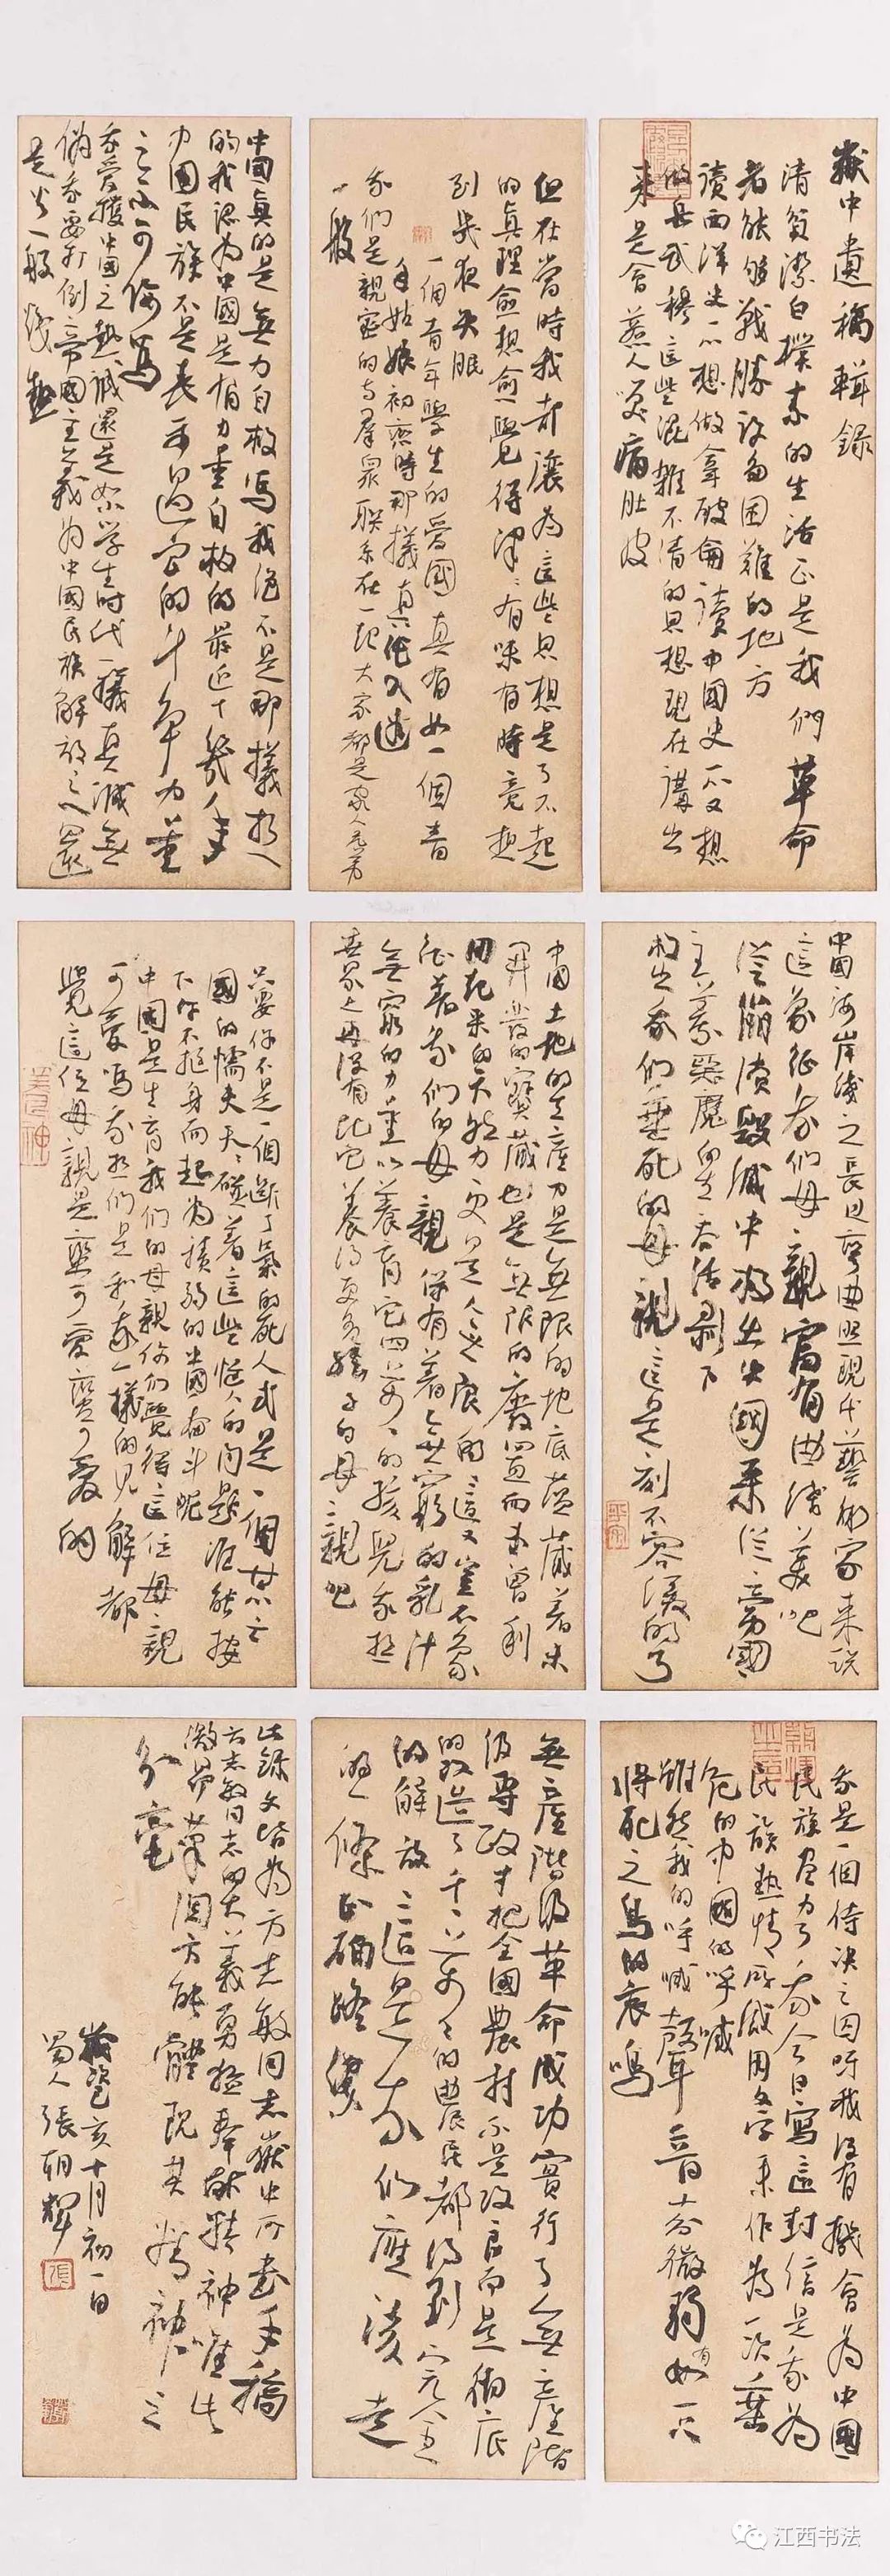 獄中遺稿輯錄
清貧潔白樸素的生活正是我們革命
者能够戰勝許多困難的地方
讀西洋史一心想做拿破侖讀中國史一心又想
做岳武穆這些混雜不清的思想現在講出
来是會惹人笑痛肚皮
但在當時我却讓為這些思想是了不起
的真理愈想愈覺得津々有味有時竟想
到幾夜失眠
一個青年學生的愛國真有如一個青
年姑娘初戀時那樣真純入迷
我們是親密的与羣眾联系在一起大家都是家人兄弟
一般
中國真的是無力自救嗎我絕不是那樣想
的我認為中國是有力量自救的最近十幾年
中國民族不是表示過它的斗争力量
之不可侮嗎
我愛護中國之熱誠還是如小学生時代一樣真誠無
偽我要打倒帝國主義為中國民族解放之心還
是火一般熾熱
中國海岸綫之長且彎曲照現代藝術家来説
這象征我們母親富有曲綫美吧
從崩潰毀滅中救出中國来從帝國
主義惡魔生吞活剥下
救出我們垂死的母親這是刻不容緩的了
中國土地的生產力是無限的地底蘊藏着未
開發的寶藏也是無限的廢置而未曾利
用起来的天然力更是無限的這又豈不象
征着我們的母親保有着無窮的乳汁
無窮的力量以養育它四萬々的孩兒我想
世界上再没有比它養得更多孩子的母親吧
只要你不是一個断了氣的死人或是一個甘心亡
國的懦夫天々碰着這些惱人的問題誰能按
下你不挺身而起為積弱的中國奮斗呢
中國是生育我們的母親你們覺得這位母親
可愛嗎我想你們是和我一樣的見解都
覺這位母親是蠻可愛蠻可愛的
我是一個待决之囚呀我没有機會為中國
民族盡力了我今日寫這封信是我為
民族熱情所感用文字来作為一次垂
危的中國的呼喊
雖然我的呼喊聲音十分微弱有如一只
將死之鳥的哀鳴
無產階級革命成功實行了無產階
级專政才把全國農村不是改良而是徹底
的改造了千々萬々的農民都得到完全
的解放這是我們應該走
的一條正確路綫
此録文皆為方志敏同志獄中所書手稿
方志敏同志的大義勇猛奉献精神唯失
微弟筆
歲癸亥十月初一日
蜀人張朝輝
江西书法